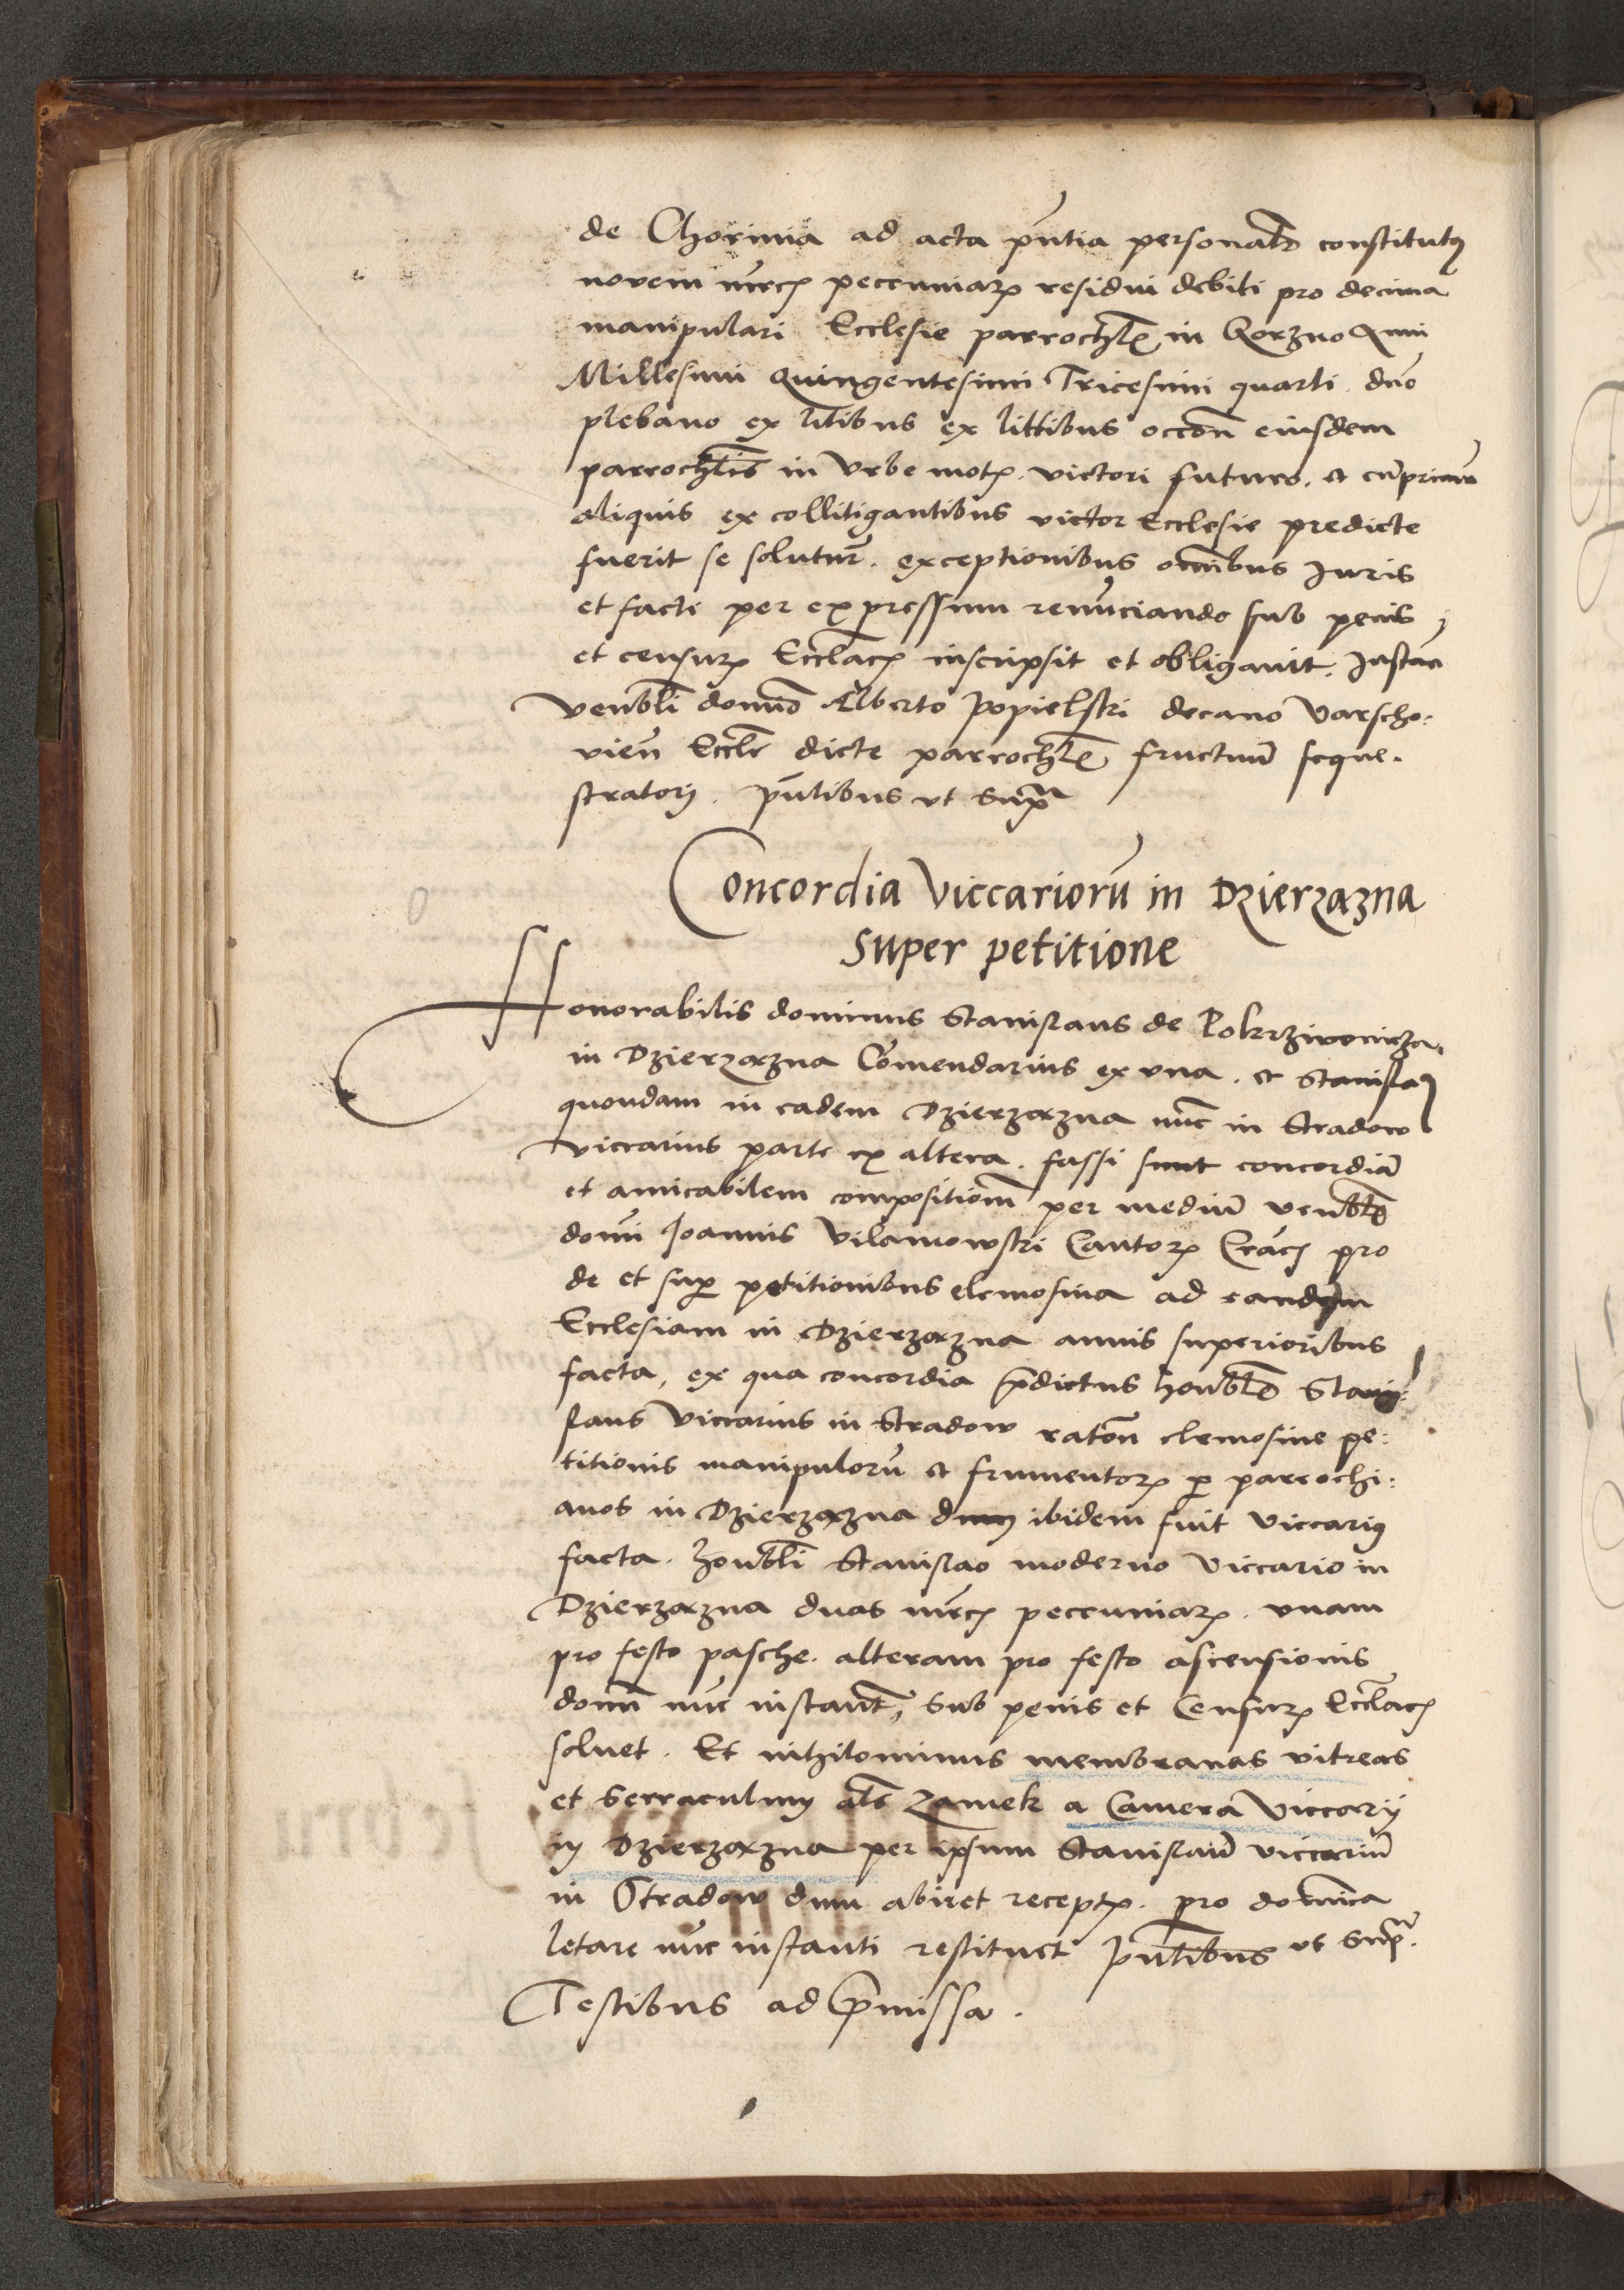 de Chorinia ad acta pñtia personalr constitutꝰ
novem mrcȩ peccuniarꝝ residui debiti pro decima
manipulari Ecclesie parrochlȩ in Korzno Anni
Millesimi Quingentesimi Tricesimi quarti dño
plebano ex litibus ex littibus occoñ eiusdem
parrochlis in Vrbe motꝭ. victori futuro. et cũprimũ
aliquis ex collitigantibus victor Ecclesie predicte
fuerit se soluturꝝ. exceptionibus omĩbus Iuris
et facti per expressum renũciando sub penis
et censurꝭ Ecclacȩ inscripsit et obligavit. Instañ
Venbli domĩo Alberto Popielski decano Varscho:
vieñ Eccle dicte parrochlȩ fructuũ seque.
stratori. pñtibus vt supra
Concordia Viccariorũ in Dzierzazna
super petitione
Honorabilis dominus Stanislaus de
in Dzierzazna Comendarius ex vna. et Stanislaꝰ
quondam in eadem Dzierzazna nũc in Stradow
viccarius parte ex altera. fassi sunt concordiã
et amicabilem compositionẽ per mediũ venblis
domi Joannis Vilamowski Cantorꝭ Cracȩ pro
de et sup petitionibus elemosina ad eandem
Ecclesiam in Dzierzazna annis superioribus
facta, ex qua concordia p̃dictus honblis Stani:
slaus viccarius in Stradow ratoñe elemosine pe:
titionis manipulorũ et frumentorꝝ p parrochi:
anos in Dzierzazna dum ibidem fuit viccariꝰ
facta. honbli Stanislao moderno Viccario in
Dzierzazna duas mrcȩ peccuniarꝝ. vnam
pro festo pasche. alteram pro festo ascensionis
domĩ nũc instantꝭ, sub penis et Censurꝭ Ecclacȩ
soluet. Et nihilominus membranas vitreas
et serraculum als zamek a Camera Viccarij
in Dzierzazna per ipsum Stanislaũ viccariũ
in Stradow dum abiret receptꝭ. pro domĩca
letare nũc instanti restituet pñtibus vt supra.
Testibus ad p̃missa.